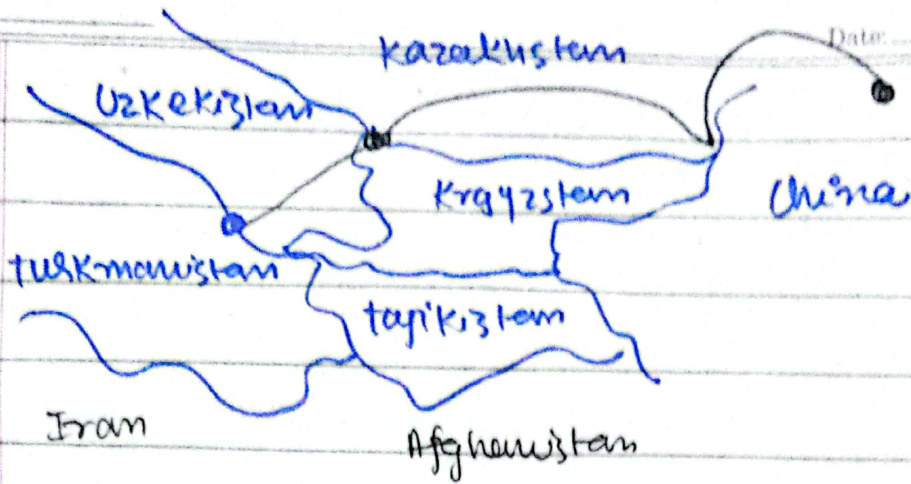 Date:
Kazakhstan
Uzkekistan
Krgyzstan
China
turkmanistan
tajikistan
Iran
Afghanistan